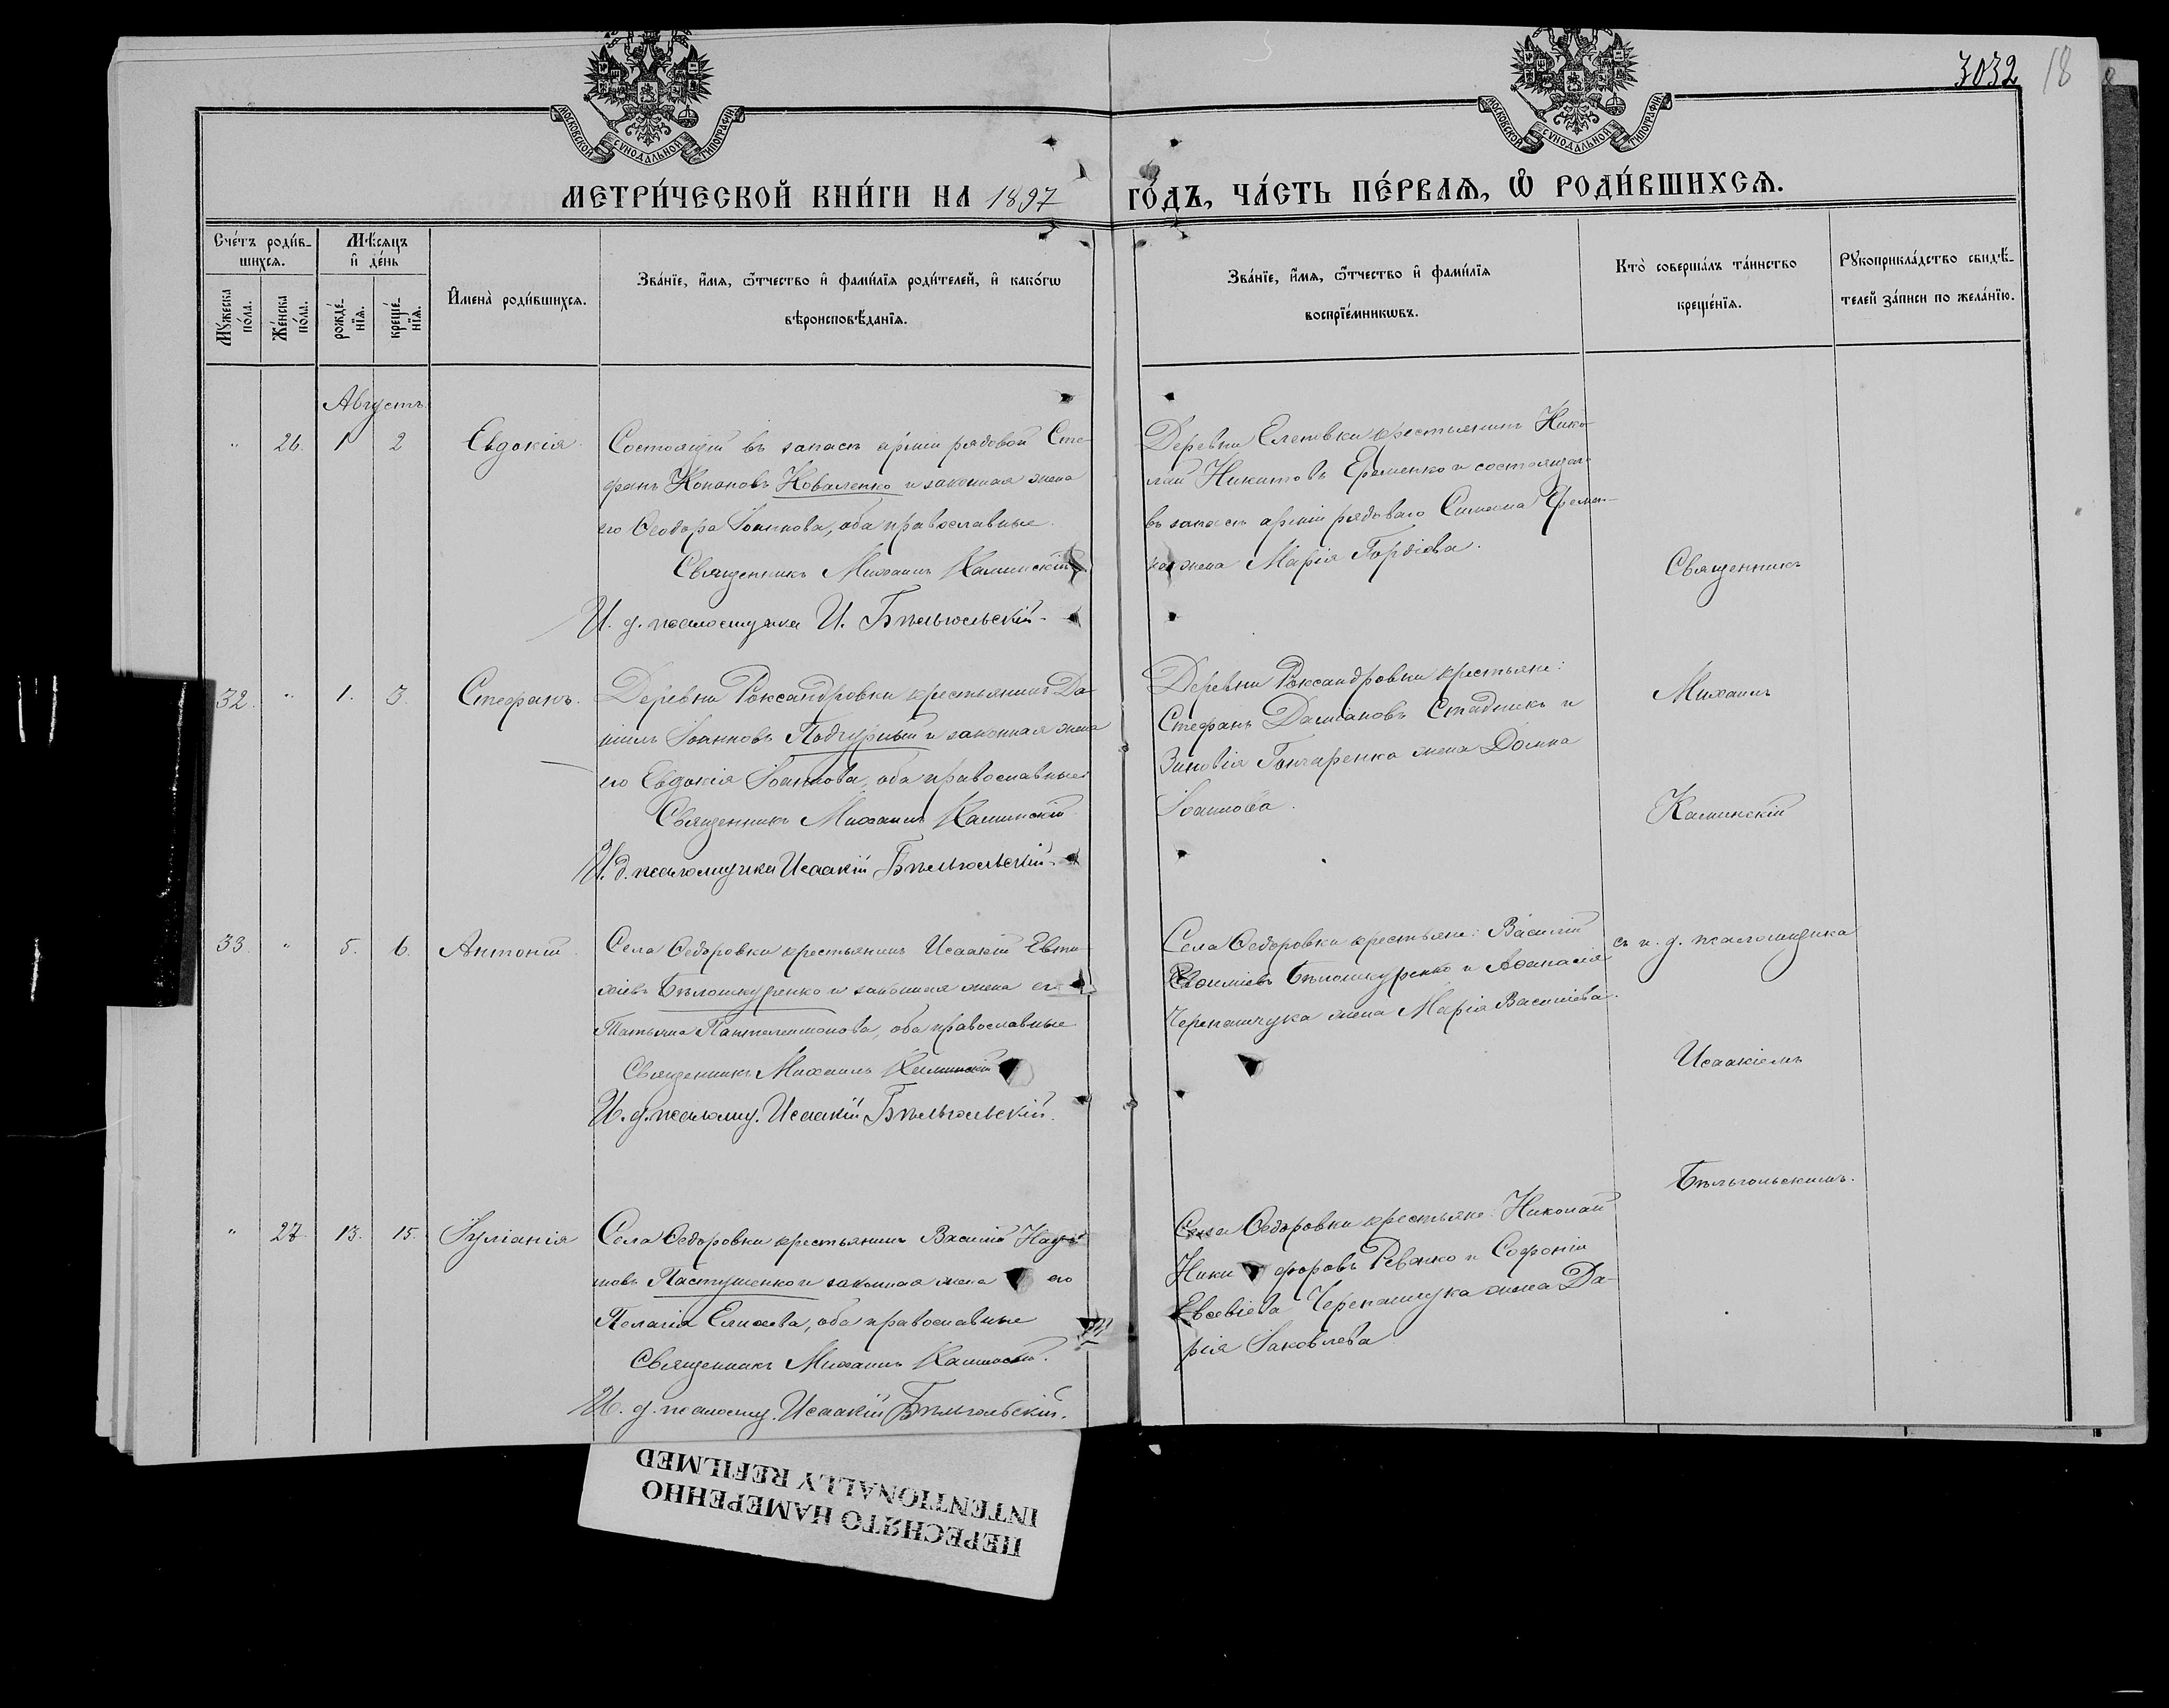 3032 18
МОСКОВСКОЙ СѴНОДАЛЬНОЙ ТИПОГРАФІИ
МОСКОВСКОЙ СѴНОДАЛЬНОЙ ТИПОГРАФІИ
МЕТРИ́ЧЕСКОЙ КНИ́ГИ НА 1897 ГО́ДЪ, ЧА́СТЬ ПЕ́РВАѦ, Ѽ РОДИ́ВШИХСѦ.
Сче́тъ роди́в-
шихсѧ.
Мꙋжеска по́ла.
Же́нска по́ла.
Мѣ́сѧцъ
и҆ де́нь
рожде́-
нїѧ.
креще́-
нїѧ.
И҆мена̀ роди́вшихсѧ.
Зва́нїе, и҆́мѧ, ѻ҆́тчество и҆ фами́лїѧ роди́телей, и҆ како́гѡ
вѣроисповѣ́данїѧ.
Зва́нїе, и҆́мѧ, ѻ҆́тчество и҆ фами́лїѧ
воспрїе́мникѡвъ.
Кто̀ соверша́лъ та́инство
креще́нїѧ.
Рꙋкоприкла́дство свидѣ́-
телей за́писи по жела́нїю.
Августъ
" 26. 1 2 Евдокія.
Состоящій въ запасѣ арміи рядовой Сте-
фанъ Кононовъ Коваленко и законная жена
его Ѳеодора Іоаннова, оба православные.
Священникъ Михаилъ Калинскій
И. д. псаломщика И. Бѣльгольскій.
Деревни Еленовки крестьянинъ Нико-
лай Никитовъ Еременко и состоящаго
въ запасѣ арміи рядоваго Симеона Еремен-
ка жена Марія Гордіева.
32. " 1. 3. Стефанъ.
Деревни Роксандровки крестьянинъ Да-
ніилъ Іоанновъ Подгурный и законная жена
его Евдокія Іоаннова, оба православные
Священникъ Михаилъ Калинскій
И. д. псаломщика Исаакій Бѣльгольскій.
Деревни Роксандровки крестьяне:
Стефанъ Даміановъ Стадникъ и
Зиновія Гончаренка жена Домна
Іоаннова.
33. " 5. 6. Антоній.
Села Ѳедоровки крестьянинъ Исаакій Евти-
хіевъ Бѣлошкуренко и законная жена его
Татьяна Пантелеимонова, оба православные
Священникъ Михаилъ Калинскій
И. д. псаломщ. Исаакій Бѣльгольскій.
Села Ѳедоровки крестьяне: Василій
Евѳиміевъ Бѣлошкуренко и Аѳанасія
Черепащука жена Марія Васильева.
" 27. 13. 15. Іуліанія
Села Ѳедоровки крестьянинъ Василій Наумовъ
Пастушенко и законная жена его
Пелагія Елисеева, оба православные
Священникъ Михаилъ Калинскій.
И. д. псаломщ. Исаакій Бѣльгольскій.
Села Ѳедоровки крестьяне: Николай
Никифоровъ Ревенко и Софонія
Евсевіева Черепащука жена Да-
рія Іаковлева
Священникъ
Михаилъ
Калинскій
съ и. д. псаломщика
Исаакіемъ
Бѣльгольскимъ.
ПЕРЕСНЯТО НАМЕРЕННО
INTENTIONALLY REFILMED